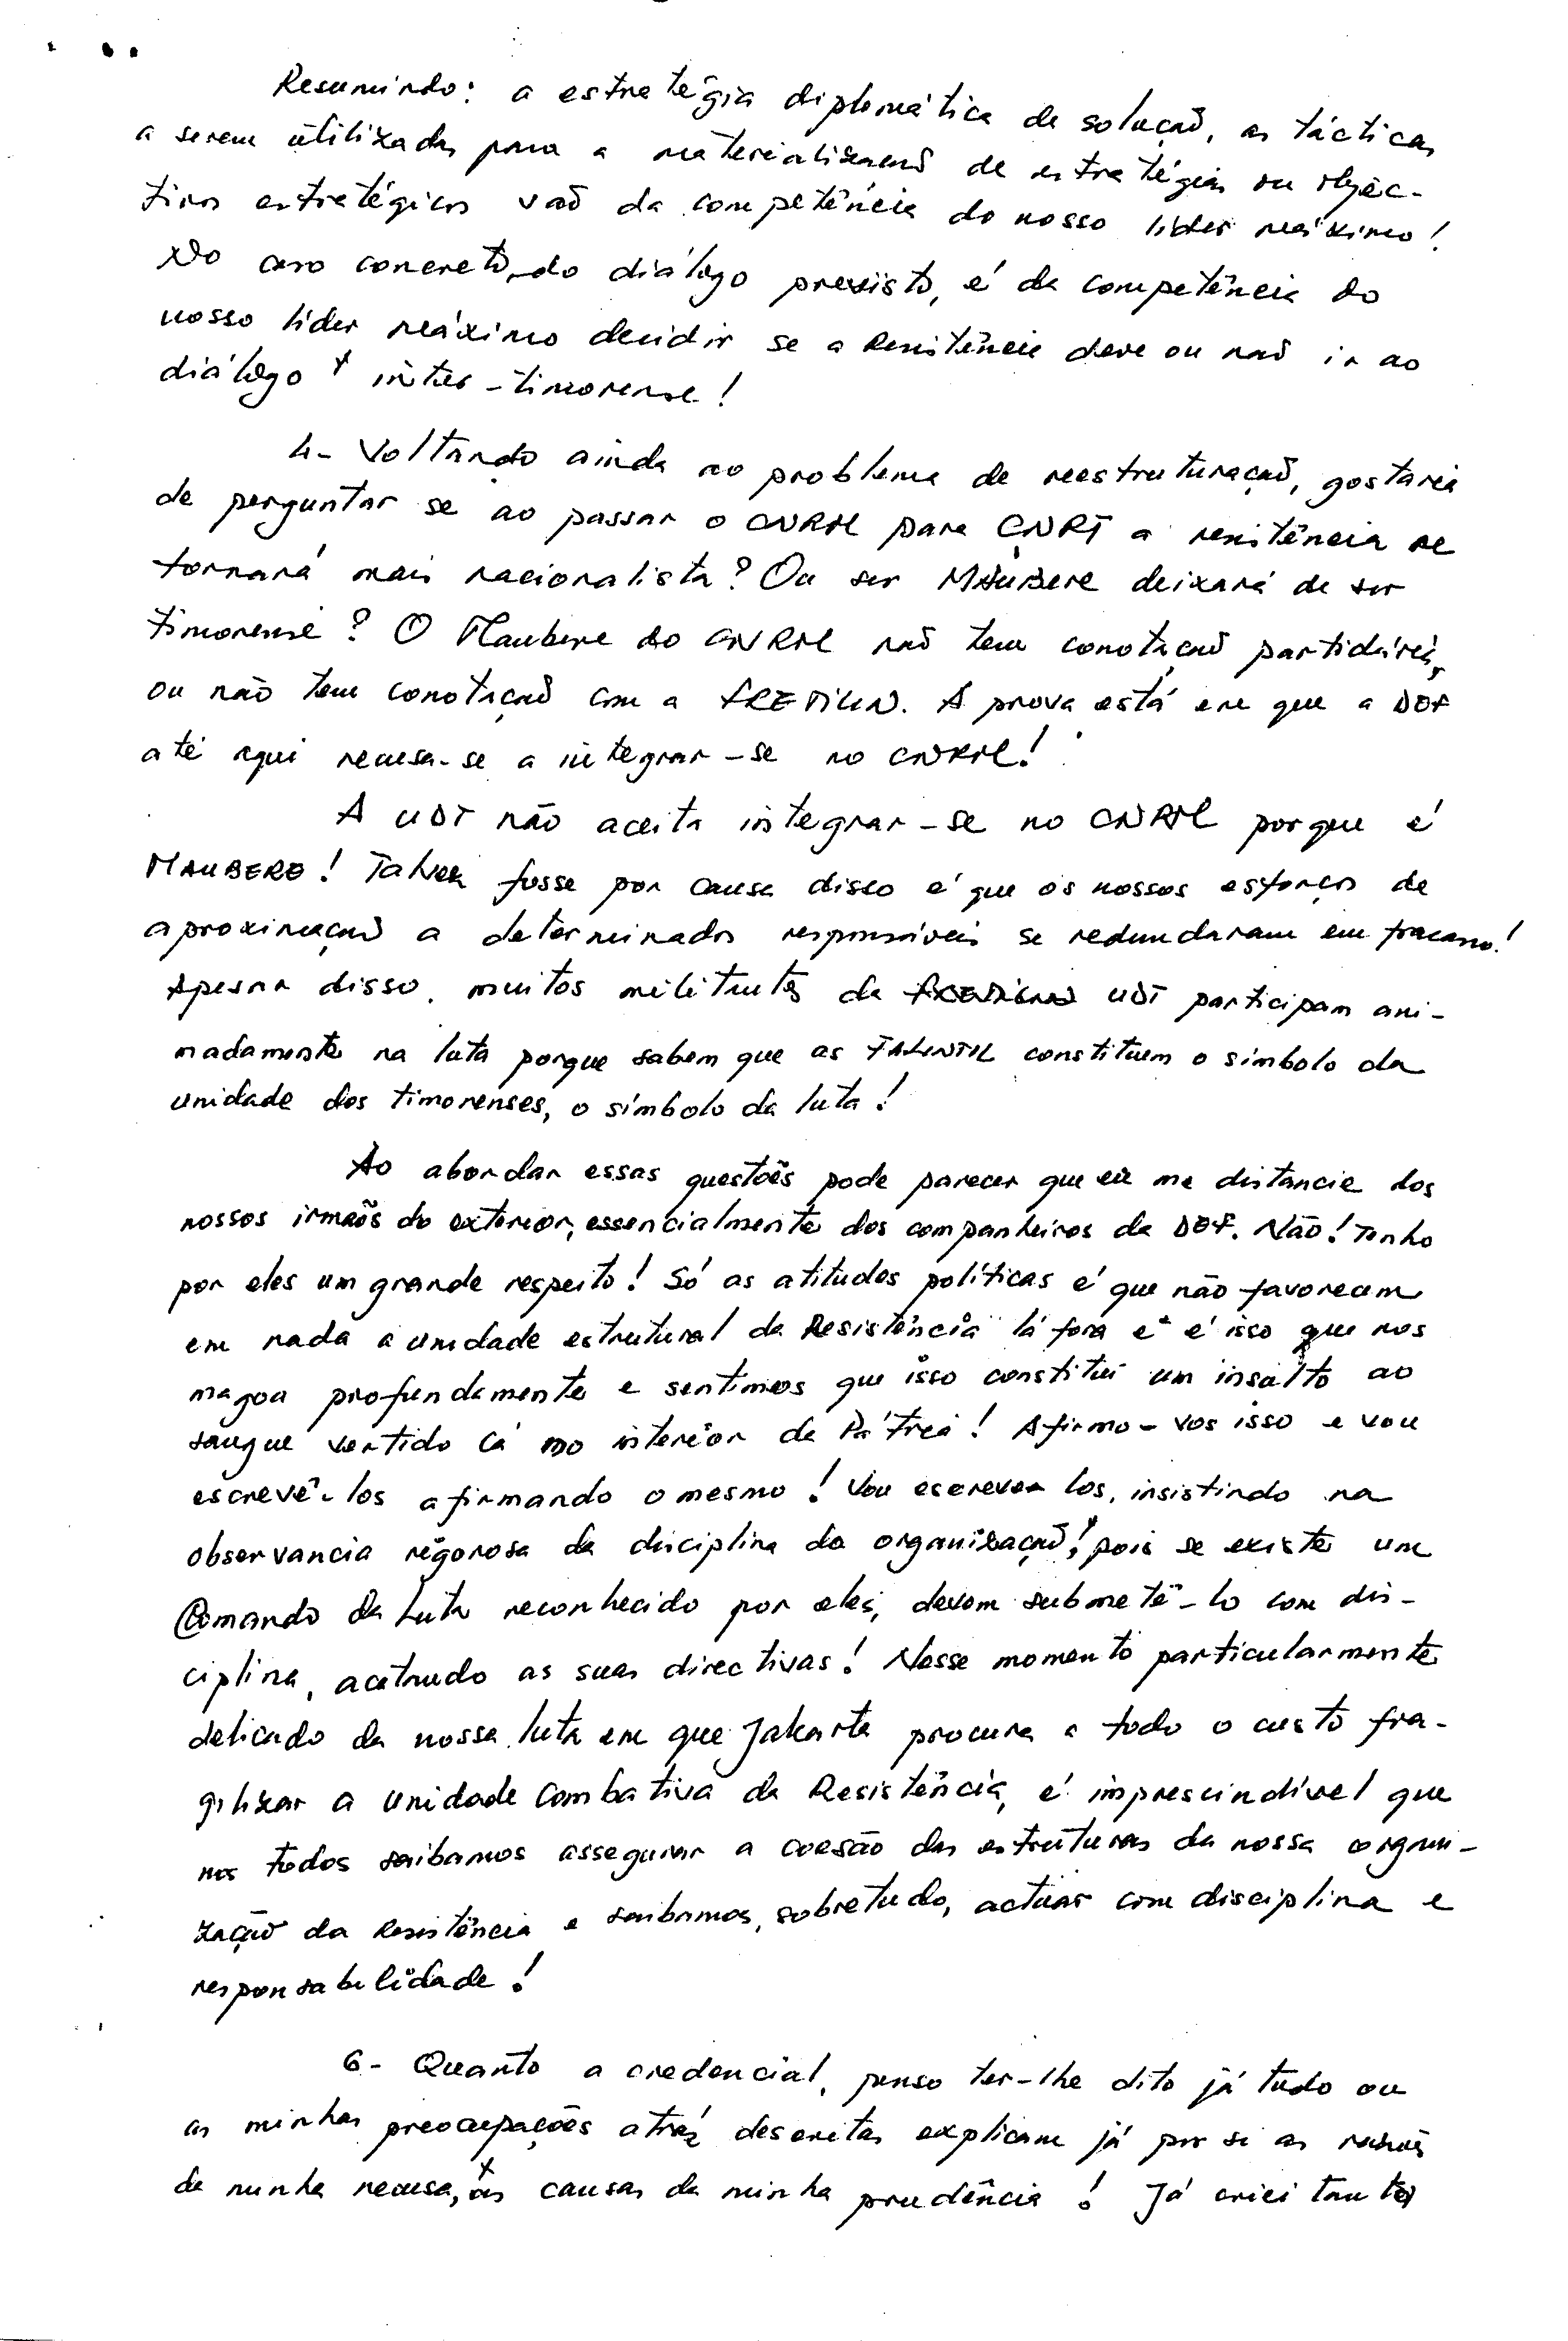 Resumindo: a estratégia diplomática de solução, as tácticas
a serem utilizadas para a materialização de estratégias ou objec-
tivos estratégicos vão da competência do nosso líder máximo!
No caso concreto, do diálogo previsto, é da competência do
nosso líder máximo decidir se a Resistência deve ou não ir ao
diálogo inter-timorense!
4- Voltando ainda ao problema de reestruturação, gostaria
de perguntar se ao passar o CNRM para CNRT a resistência se
tornará mais nacionalista? Ou ser MAUBERE deixará de ser
timorense? O Maubere do CNRM não tem conotação partidária,
ou não tem conotação com a FRETILIN. A prova está em que a DEF
até aqui recusa-se a integrar-se no CNRM!
A UDT não aceita integrar-se no CNRM porque é
MAUBERE! Talvez fosse por causa disso é que os nossos esforços de
aproximação a determinados responsáveis se redundaram em fracasso!
Apesar disso, muitos militantes da UDT participam ani-
madamente na luta porque sabem que as FALINTIL constituem o símbolo da
unidade dos timorenses, o símbolo da luta!
Ao abordar essas questões pode parecer que eu me distancie dos
nossos irmãos do exterior, essencialmente dos companheiros da DEF. Não! Tenho
por eles um grande respeito! Só as atitudes políticas é que não favorecem
em nada a unidade estrutural da Resistência lá fora e é isso que nos
magoa profundamente e sentimos que isso constitui um insulto ao
sangue vertido cá no interior da Pátria! Afirmo-vos isso e vou
escrevê-los afirmando o mesmo! Vou escrever los, insistindo na
observancia rigorosa da disciplina da organização! pois se existe um
Comando da Luta reconhecido por eles, devem submetê-lo com dis-
ciplina, acatando as suas directivas! Nesse momento particularmente
delicado da nossa luta em que Jakarta procura a todo o custo fra-
gilizar a unidade combativa da Resistência, é imprescindível que
nos todos saibamos assegurar a coesão das estruturas da nossa organi-
zação da Resistência e saibamos, sobretudo, actuar com disciplina e
responsabilidade!
6- Quanto a credencial, penso ter-lhe dito já tudo ou
as minhas preocupações atráz descritas explicam já por si as razões
da minha recusa, as causas da minha prudência! Já criei tantos